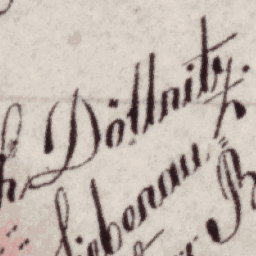 h, Döllnitz.
Liebenau,